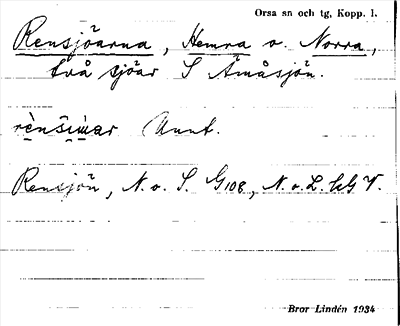 Orsa sn och tg, Kopp. l.
Rensjöarna, Hemra o. Norra,
två sjöar S Åmåsjön.
rènsi̯ŵar Unnt.
Rensjön, N. o. S. G108, N. o. L. kG V.
Bror Lindén 1934